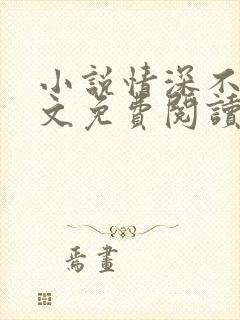 小説情深不
文免費閱讀
焉畫